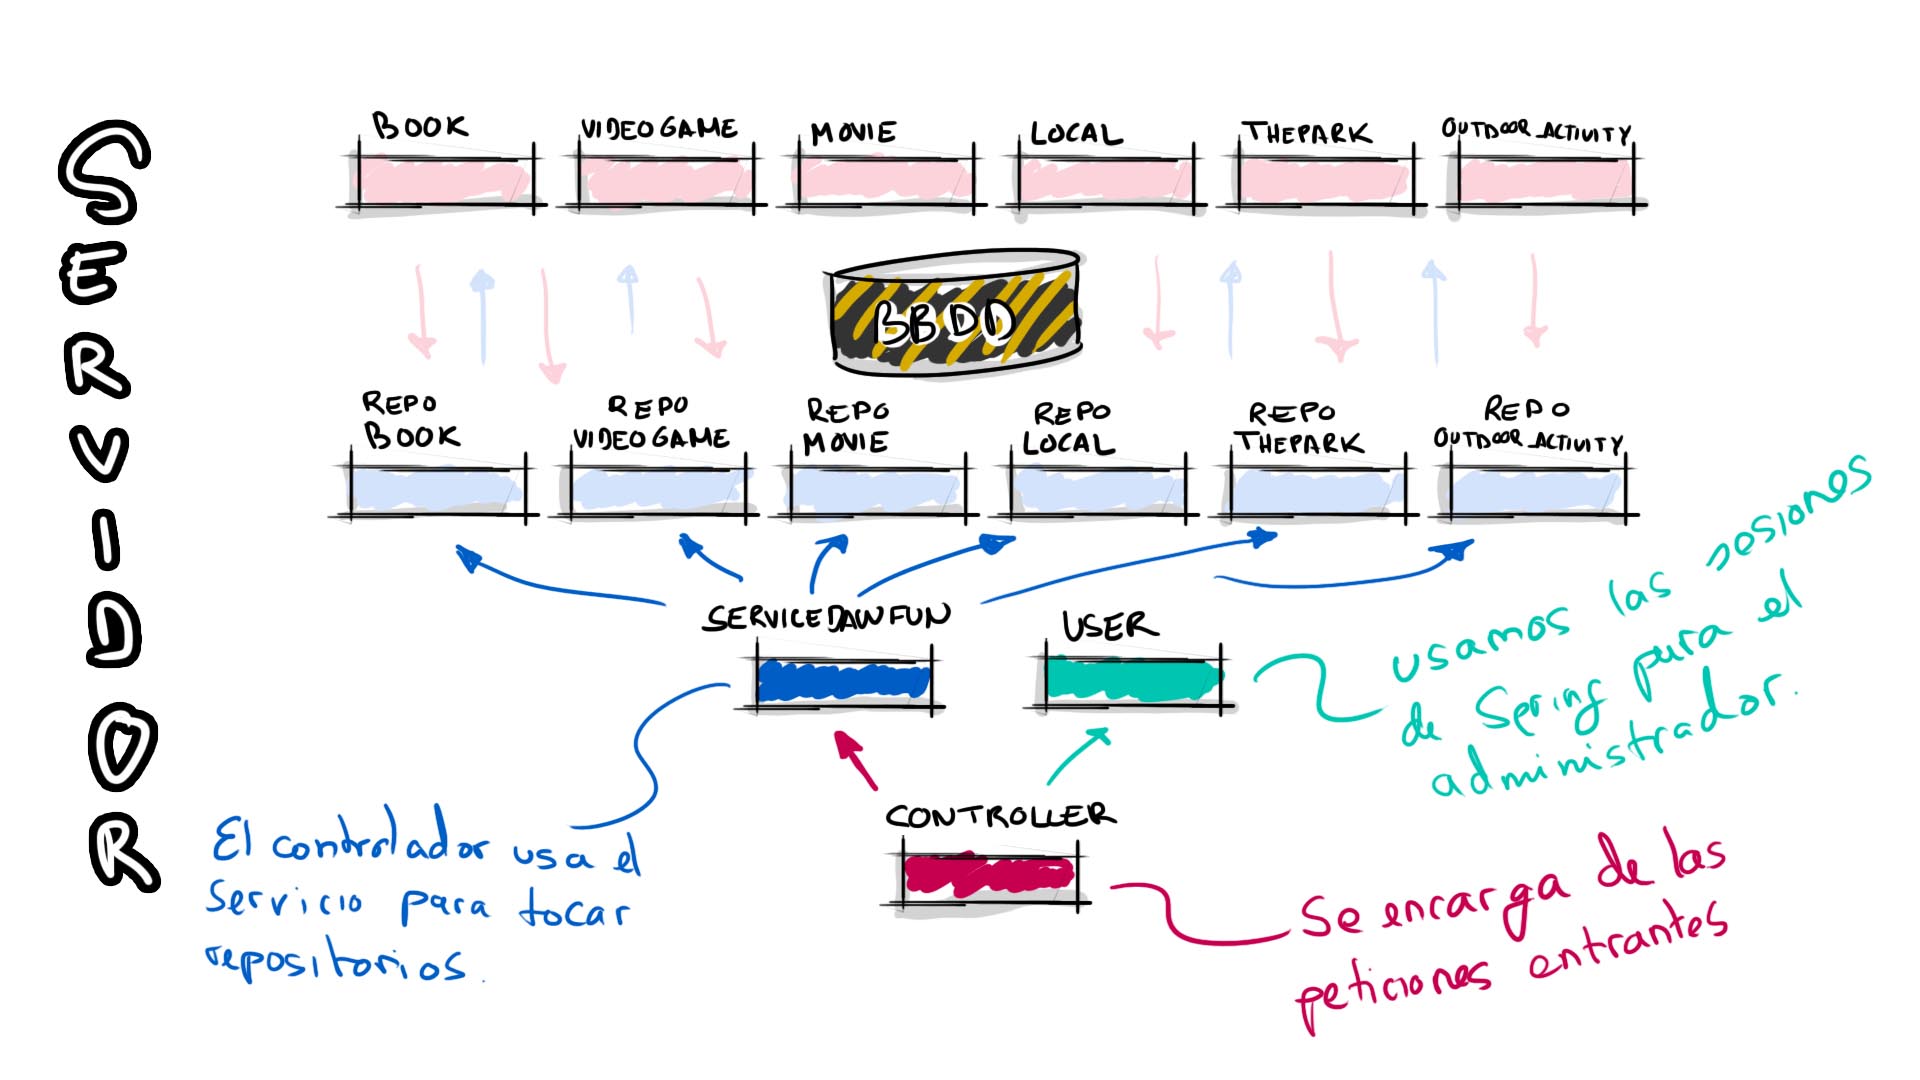 SERVIDOR
BOOK
VIDEOGAME
MOVIE
LOCAL
THEPARK
OUTDOOR_ACTIVITY
BBDD
REPO
BOOK
REPO
VIDEOGAME
REPO
MOVIE
REPO
LOCAL
REPO
THEPARK
REPO
OUTDOOR_ACTIVITY
SERVICEDAWFUN
USER
usamos las sesiones
de Spring para el
administrador.
CONTROLLER
El controlador usa el
servicio para tocar
repositorios.
Se encarga de las
peticiones entrantes